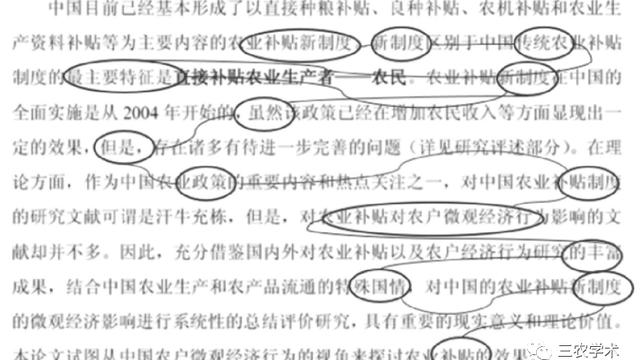 中国目前已经基本形成了以直接种粮补贴、良种补贴、农机补贴和农业生
产资料补贴等为主要内容的农业补贴新制度,新制度区别于中国传统农业补贴
制度的最主要特征是直接补贴农业生产者——农民。农业补贴新制度在中国的
全面实施是从 2004 年开始的,虽然该政策已经在增加农民收入等方面显现出一
定的效果,但是,存在诸多有待进一步完善的问题(详见研究评述部分)。在理
论方面,作为中国农业政策的重要内容和热点关注之一,对中国农业补贴制度
的研究文献可谓是汗牛充栋,但是,对农业补贴对农户微观经济行为影响的文
献却并不多。因此,充分借鉴国内外对农业补贴以及农户经济行为研究的丰富
成果,结合中国农业生产和农产品流通的特殊国情,对中国的农业补贴新制度
的微观经济影响进行系统性的总结评价研究,具有重要的现实意义和理论价值。
本论文试图从中国农户微观经济行为的视角来探讨农业补贴的效果
三农学术